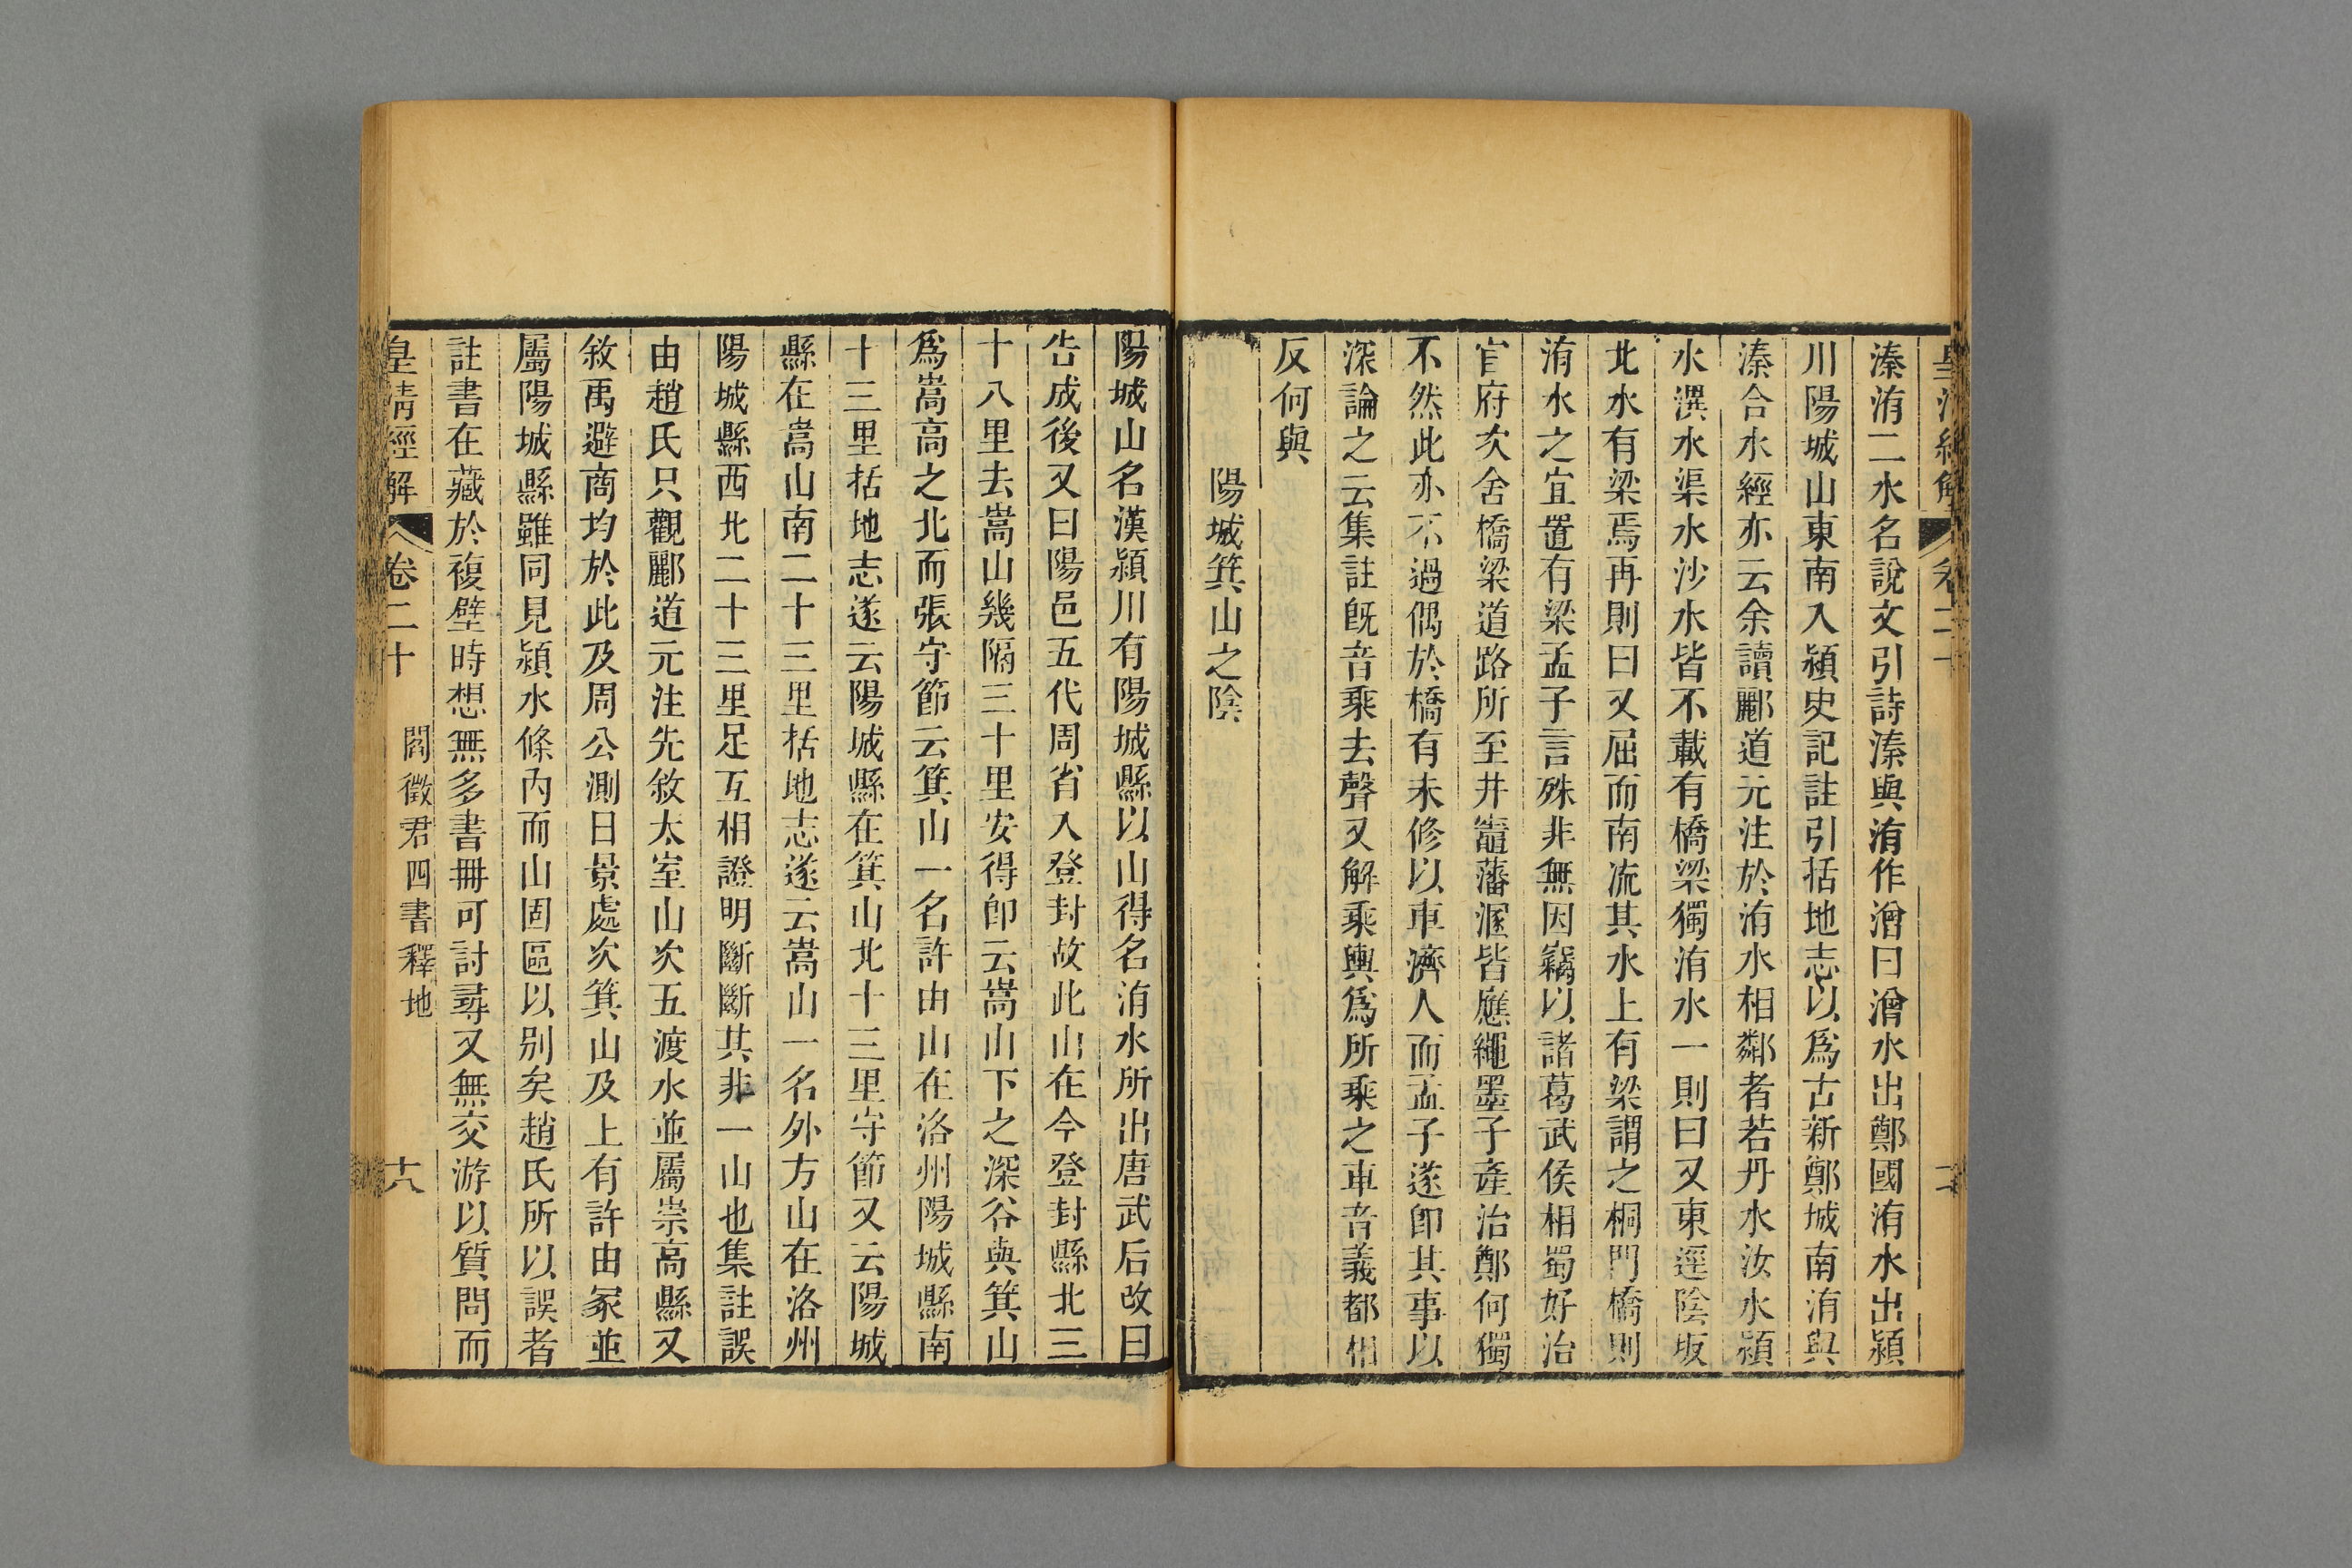 溱洧二水名說文引詩溱與洧作潧曰潧水出鄭國洧水出潁
川陽城山東南入潁史記註引括地志以爲古新鄭城南洧與
溱合水經亦云余讀酈道元注於洧水相鄰者若丹水汝水潁
水潩水渠水沙水皆不載有橋梁獨洧水一則曰又東逕陰坂
北水有梁焉再則曰又屈而南流其水上有梁謂之桐門橋則
洧水之宜置有梁孟子言殊非無因竊以諸葛武侯相蜀好治
官府次舍橋梁道路所至井竈藩溷皆應繩墨子產治鄭何獨
不然此亦不過偶於橋有未修以車濟人而孟子遂卽其事以
深論之云集註旣音乘去聲又解乘輿爲所乘之車音義都相
反何與
陽城箕山之陰
陽城山名漢潁川有陽城縣以山得名洧水所出唐武后改曰
告成後又曰陽邑五代周省入登封故此山在今登封縣北三
十八里去嵩山幾隔三十里安得卽云嵩山下之深谷與箕山
爲嵩高之北而張守節云箕山一名許由山在洛州陽城縣南
十三里括地志遂云陽城縣在箕山北十三里守節又云陽城
縣在嵩山南二十三里括地志遂云嵩山一名外方山在洛州
陽城縣西北二十三里足互相證明斷斷其非一山也集註誤
由趙氏只觀酈道元注先敘太室山次五渡水並屬崇高縣又
敘禹避商均於此及周公測日景處次箕山及上有許由冢並
屬陽城縣雖同見潁水條內而山固區以别矣趙氏所以誤者
註書在藏於複壁時想無多書冊可討尋又無交游以質問而
皇清經解 卷二十 閻徵君四書釋地 十八